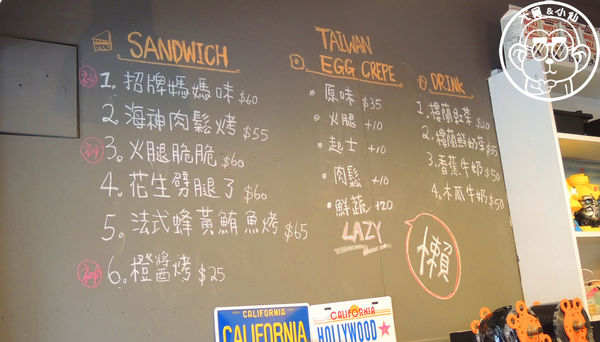 SANDWICH
神 1. 招牌媽媽味 $60
2. 海神肉鬆烤 $55
神 3. 火腿脆脆 $60
4. 花生劈腿了 $60
5. 法式蜂黃鮪魚烤 $65
神 6. 橙醬烤 $25
TAIWAN
EGG CREPE
原味 $35
火腿 +10
起士 +10
肉鬆 +10
鮮蔬 +20
LAZY
DRINK
1. 樓蘭紅茶 $20
2. 樓蘭鮮奶茶 $35
3. 香蕉牛奶 $50
4. 木瓜牛奶 $50
懶
CALIFORNIA
CALIFORNIA
CALIFORNIA
HOLLYWOOD